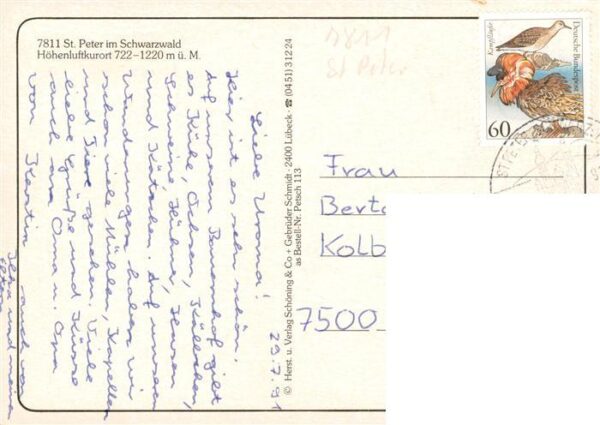 7811 St. Peter im Schwarzwald
Höhenluftkurort 722–1220 m ü. M.
7811
St Peter
Kampfläufer
Deutsche Bundespost
60
29.7.91
Liebe Uroma!
Hier ist es sehr schön.
Auf unserem Bauernhof gibt
es Kühe, Ochsen, Kälbchen,
Schweine, Hühner, Hasen
und Kätzchen. Auf unseren
Wanderungen haben wir
schon viele Mühlen, Kapellen
und Tiere gesehen. Viele
liebe Grüße und Küsse
auch an Oma u. Opa
von Kerstin auch von
und meinen
Eltern
© Herst. u. Verlag Schöning & Co + Gebrüder Schmidt · 2400 Lübeck · ☎ (04 51) 3 12 24
as Bestell-Nr. Petsch 113
Frau
Berta
Kolb
7500